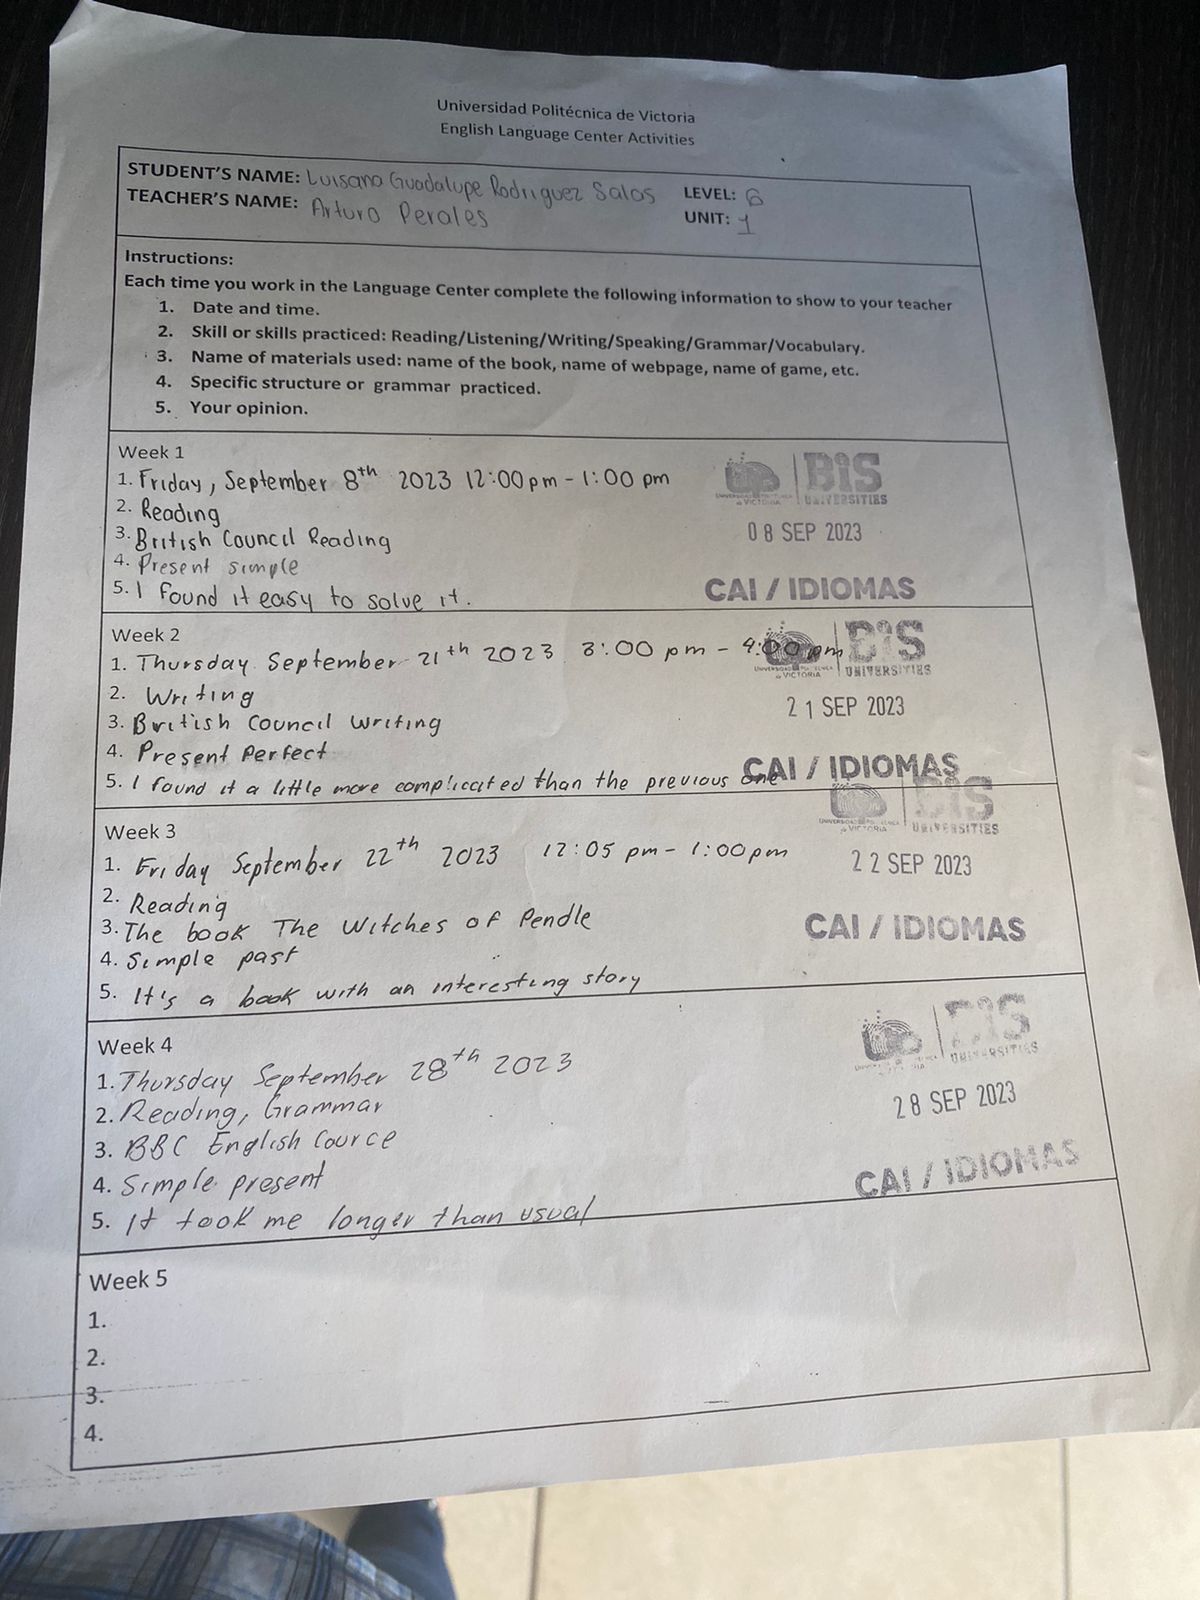 Universidad Politécnica de Victoria
English Language Center Activities
STUDENT'S NAME: Luisana Guadalupe Rodriguez Salas LEVEL: 6
TEACHER'S NAME: Arturo Perales UNIT: 1
Instructions:
Each time you work in the Language Center complete the following information to show to your teacher
1. Date and time.
2. Skill or skills practiced: Reading/Listening/Writing/Speaking/Grammar/Vocabulary.
3. Name of materials used: name of the book, name of webpage, name of game, etc.
4. Specific structure or grammar practiced.
5. Your opinion.
Week 1
1. Friday, September 8th 2023 12:00pm - 1:00 pm
2. Reading
3. British Council Reading
4. Present simple
5. I found it easy to solve it.
UNIVERSIDAD POLITÉCNICA de VICTORIA BiS UNIVERSITIES
08 SEP 2023
CAI / IDIOMAS
Week 2
1. Thursday September 21th 2023 3:00 pm - 4:00 pm
2. Writing
3. British Council Writing
4. Present Perfect
5. I found it a little more complicated than the previous one
UNIVERSIDAD POLITÉCNICA de VICTORIA BiS UNIVERSITIES
21 SEP 2023
CAI / IDIOMAS
Week 3
1. Friday September 22th 2023 12:05 pm - 1:00pm
2. Reading
3. The book The Witches of Pendle
4. Simple past
5. It's a book with an interesting story
UNIVERSIDAD POLITÉCNICA de VICTORIA BiS UNIVERSITIES
22 SEP 2023
CAI / IDIOMAS
Week 4
1. Thursday September 28th 2023
2. Reading, Grammar
3. BBC English Cource
4. Simple present
5. It took me longer than usual
BiS UNIVERSITIES
28 SEP 2023
CAI / IDIOMAS
Week 5
1.
2.
3.
4.